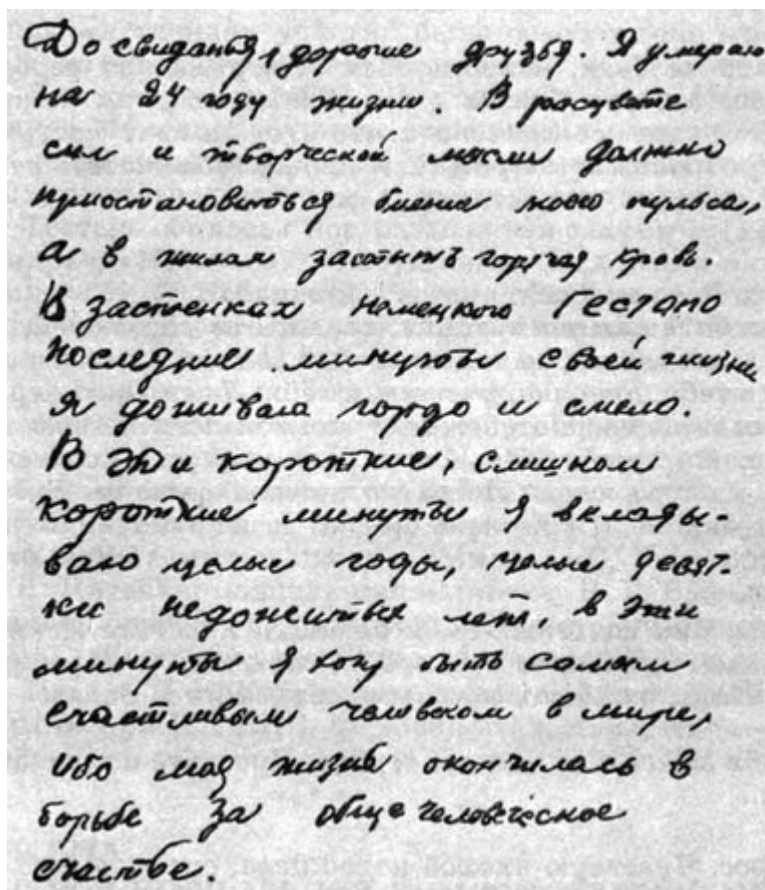 До свиданья, дорогие друзья. Я умираю
на 24 году жизни. В расцвете
сил и творческой мысли должно
приостановиться биение моего пульса,
а в жилах застыть горячая кровь.
В застенках немецкого Гестапо
последние минуты своей жизни
я доживаю гордо и смело.
В эти короткие, слишком
короткие минуты я вклады-
ваю целые годы, целые десят-
ки недожитых лет, в эти
минуты я хочу быть самым
счастливым человеком в мире,
ибо моя жизнь окончилась в
борьбе за общечеловеческое
счастье.